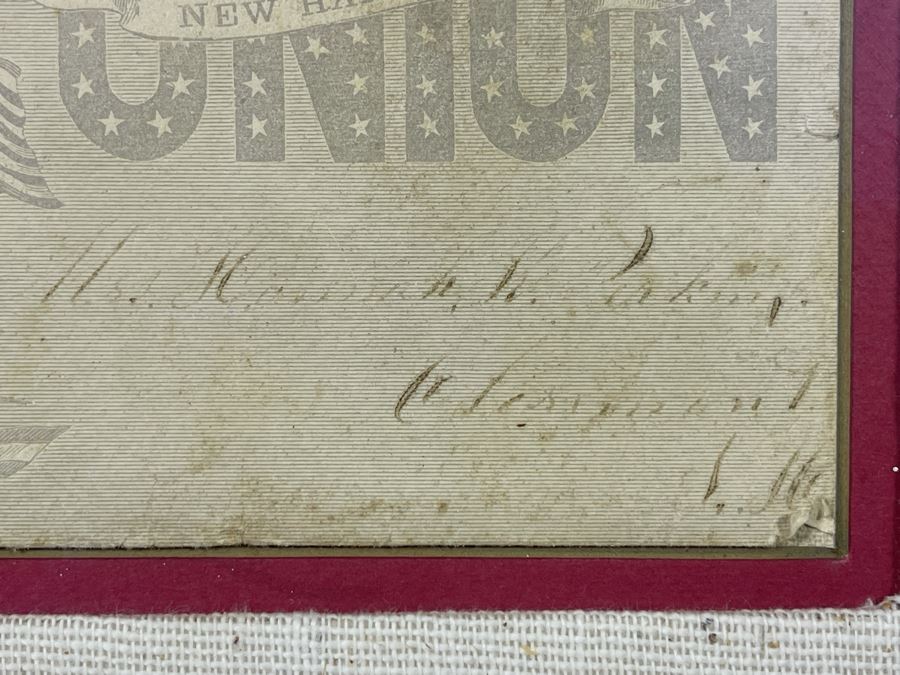 NEW HA
UNION
Mrs. Hannah K. Perkins
Claremont
N. H.